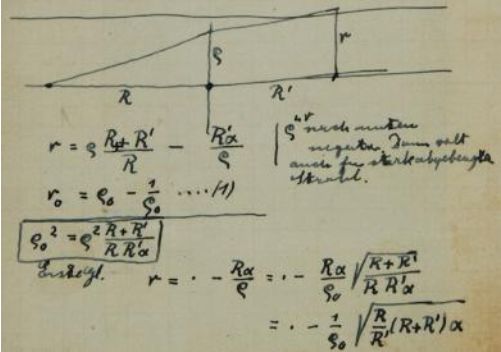 ρ r
R R'
r = ρ (R + R')/R - R'α/ρ
ρ u. r nach unten
negativ. Dann gilt
auch für stark abgebeugten
Strahl.
r₀ = ρ₀ - 1/ρ₀ ....(1)
ρ₀² = ρ² (R + R')/(R R'α)
r = · - Rα/ρ = · - Rα/ρ₀ √((R + R')/(R R'α))
= · - 1/ρ₀ √(R/R' (R+R') α)